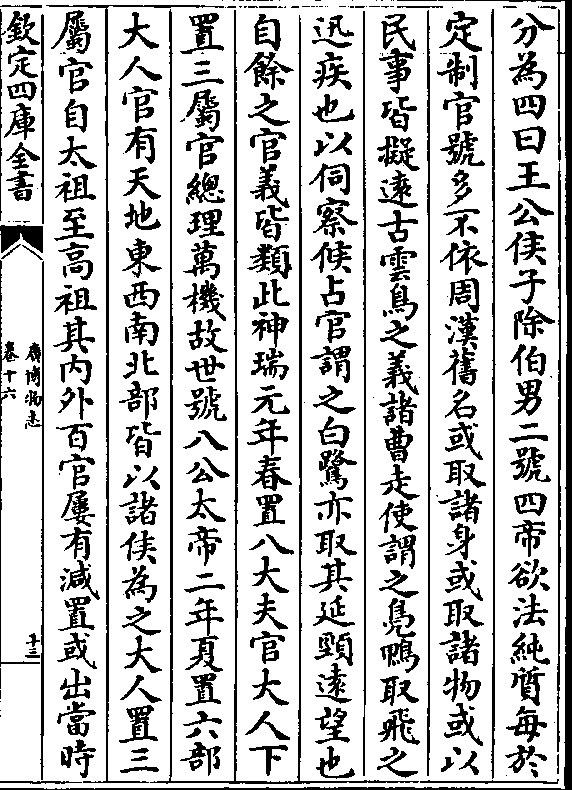 分為四曰王公侯子除伯男二號四帝欲法純質每於
定制官號多不依周漢舊名或取諸身或取諸物或以
民事皆擬逺古雲鳥之義諸曹走使謂之鳬鴨取飛之
迅疾也以伺察候占官謂之白鷺亦取其延頸逺望也
自餘之官義皆類此神瑞元年春置八大夫官大人下
置三屬官總理萬機故世號八公太帝二年夏置六部
大人官有天地東西南北部皆以諸侯為之大人置三
屬官自太祖至高祖其内外百官屢有減置或出當時
欽定四庫全書
廣博物志
卷十六
十三